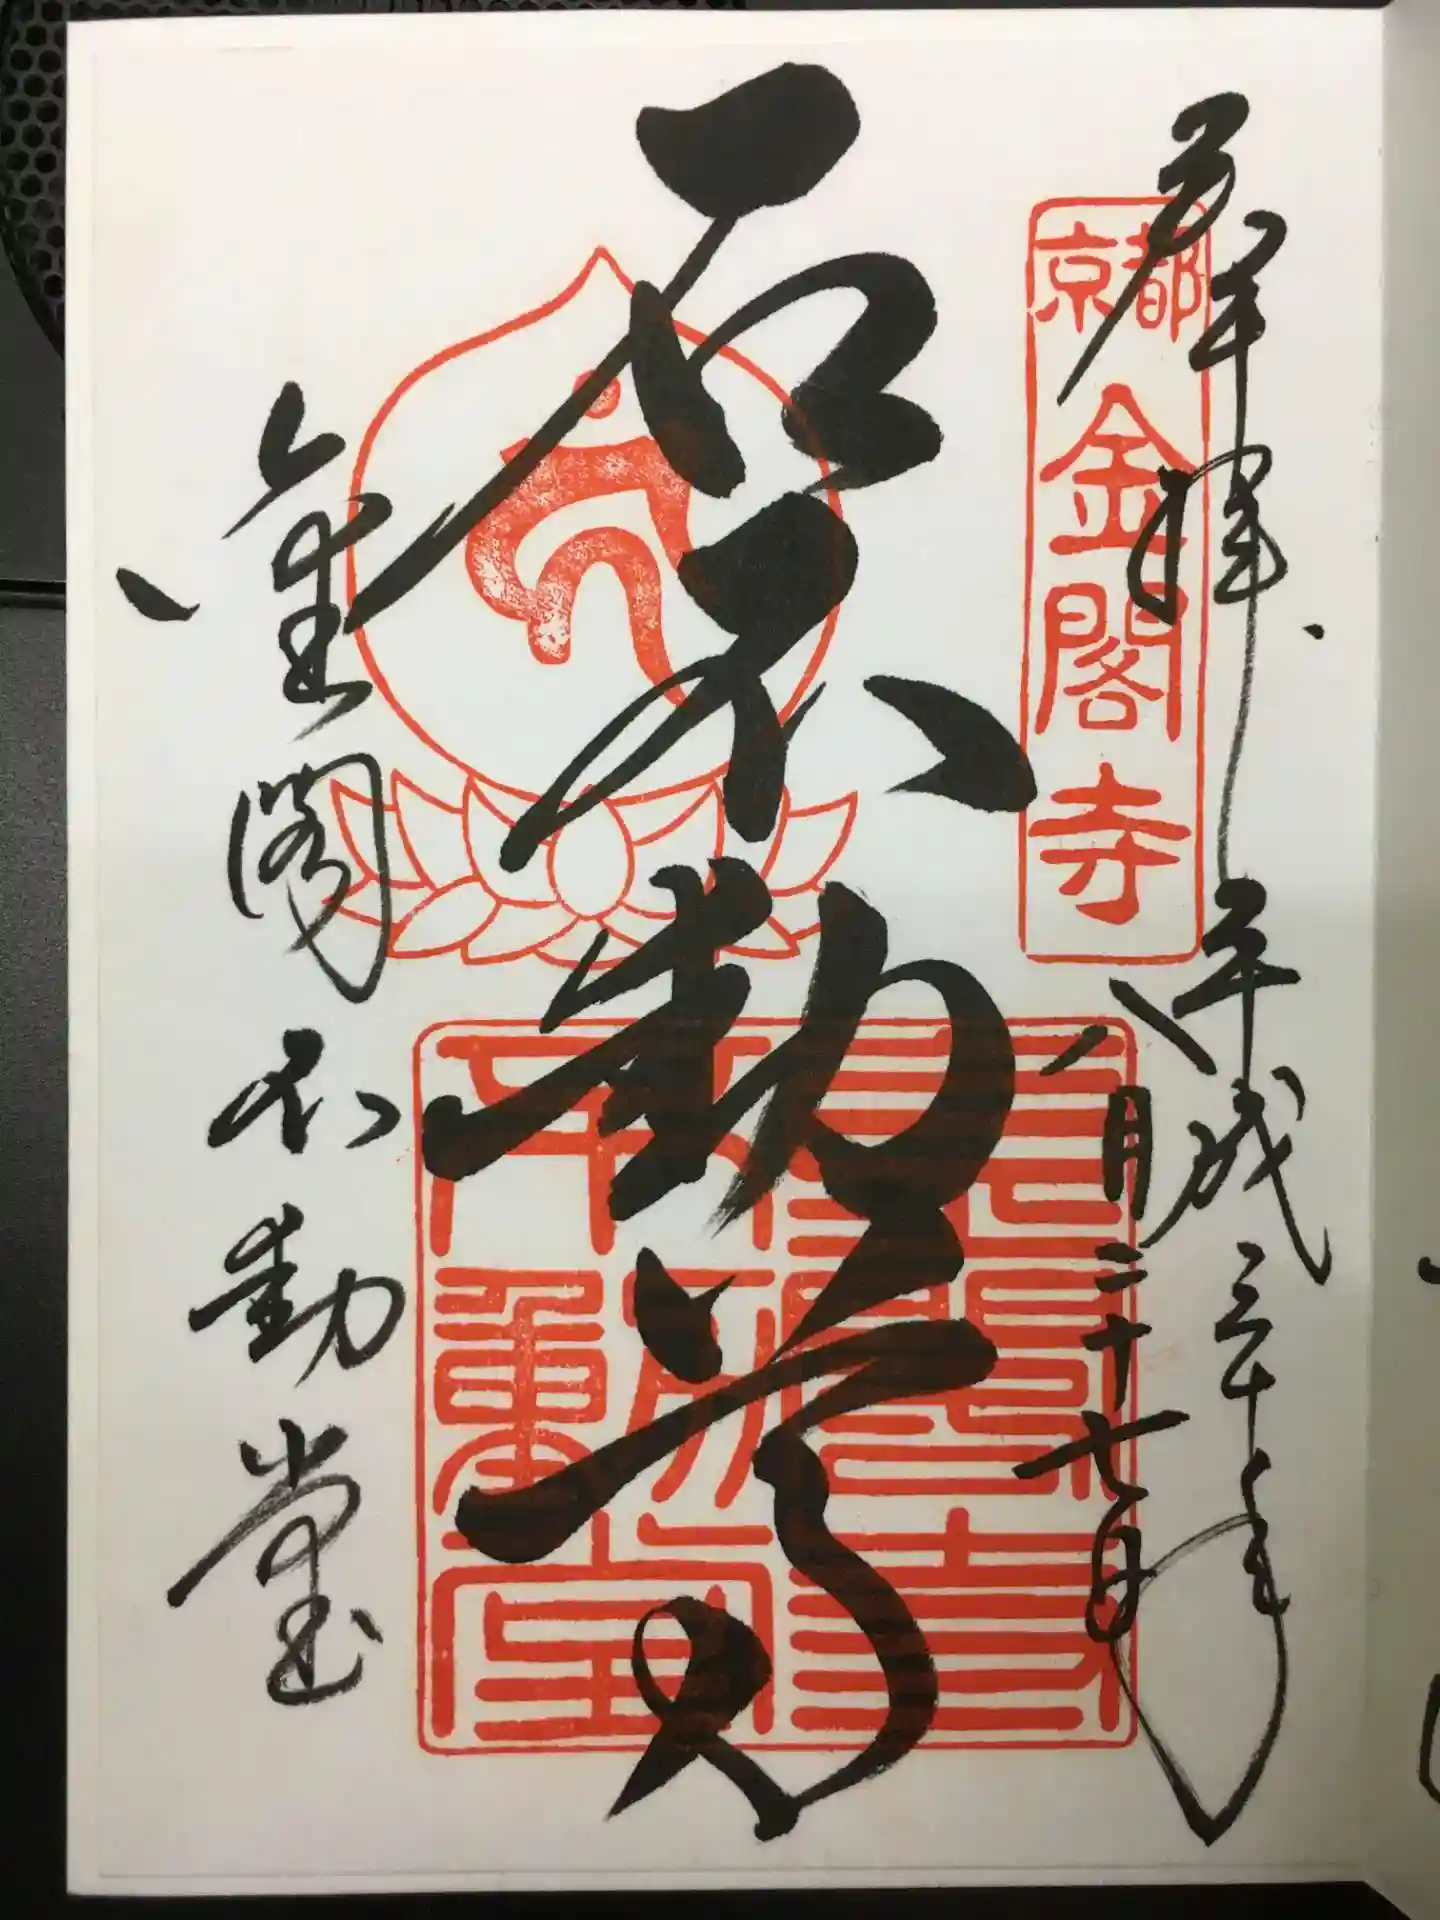 奉拝
平成三十年
八月二十七日
京都
金閣寺
石不動尊
金閣不動堂